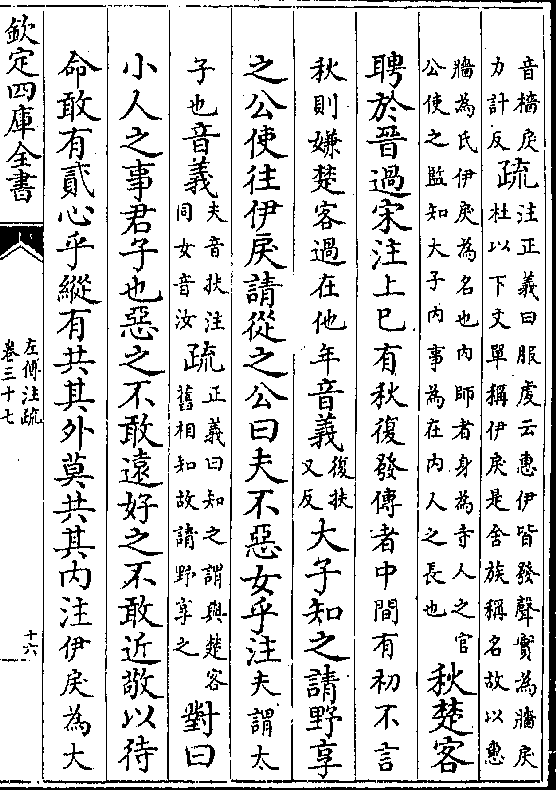 音檣戾力計反疏注正義曰服虔云惠伊皆發聲實為牆戾杜以下文單稱伊戾是舍族稱名故以惠
牆為氏伊戾為名也內師者身為寺人之官公使之監知大子內事為在內人之長也秋楚客
聘於晉過宋注上巳有秋復發傳者中間有初不言
秋則嫌楚客過在他年音義復扶又反大子知之請野享
之公使往伊戾請從之公曰夫不惡女乎注夫謂太
子也音義夫音扶注同女音汝疏正義曰知之謂與楚客舊相知故請野享之對曰
小人之事君子也惡之不敢遠好之不敢近敬以待
命敢有貳心乎縱有共其外莫共其內注伊戾為大
欽定四庫全書
左傳注疏
卷三十七
十六